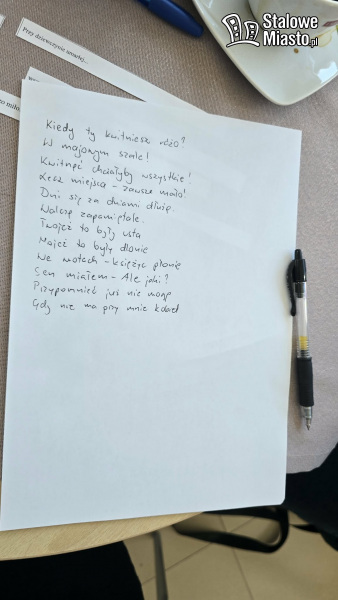 Stalowe
Miasto.pl
Przy dziewczynie umarłej...
Kiedy ty kwitniesz różo?
W majowym szale!
Kwitnąć chciałyby wszystkie!
Lecz miejsca - zawsze mało!
Dni się za dniami dłużą.
Walczę zapamiętale.
Twojeż to były usta
Mojeż to były dłonie
We włosach - księżyc płonie
Sen miałem - Ale jaki?
Przypomnieć już nie mogę
Gdy nie ma przy mnie kobiet